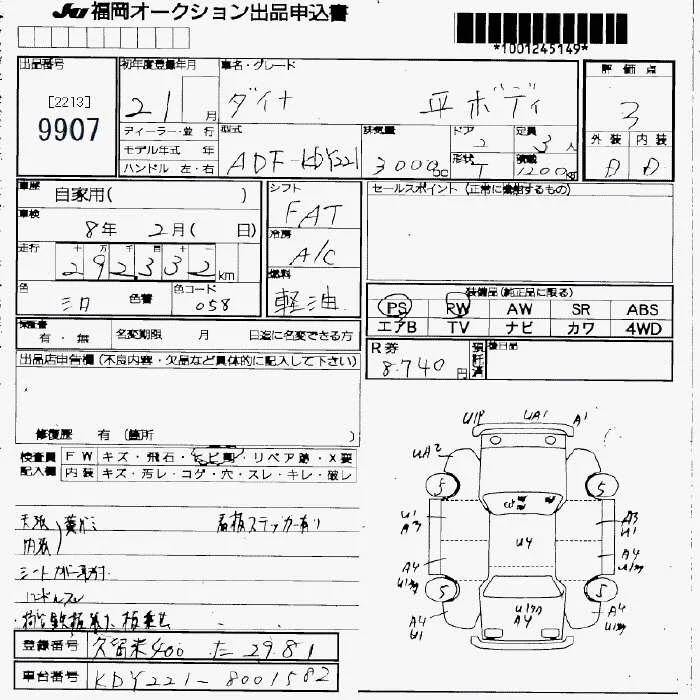 JU 福岡オークション出品申込書
*1001245149*
出品番号
[2213]
9907
初年度登録年月
21 月
車名・グレード
ダイナ 平ボディ
評価点
3
ディーラー・並行
モデル年式 年
ハンドル 左・右
型式
ADF-KDY221
排気量
3000cc
ドア
2
定員
3人
形状
T
積載
1200kg
外装 内装
D D
車歴
自家用( )
車検
8年 2月( 日)
走行
十 万 千 百 十 一
292332km
色
シロ
色替
色コード
058
シフト
FAT
冷房
A/C
燃料
軽油
セールスポイント (正常に機能するもの)
装備品(純正品に限る)
PS RW AW SR ABS
エアB TV ナビ カワ 4WD
保証書
有・無
名変期限 月 日迄に名変できる方
R券
8.740円
預託済
後日品
出品店申告欄(不良内容・欠品など具体的に記入して下さい)
修復歴 有 (箇所 )
検査員
記入欄
FW キズ・飛石・ヒビ割・リペア跡・X要
内装 キズ・汚レ・コゲ・穴・スレ・キレ・破レ
天張
内張
看板ステッカー有り
シートカバー取付
登録番号
久留米400 た 2981
車台番号
KDY221-8001582
U1P UA1 A1
UA2
5 5
U1
A3
A3
U1
U4
A4
A4
5 5
A4
U1
A4
A4